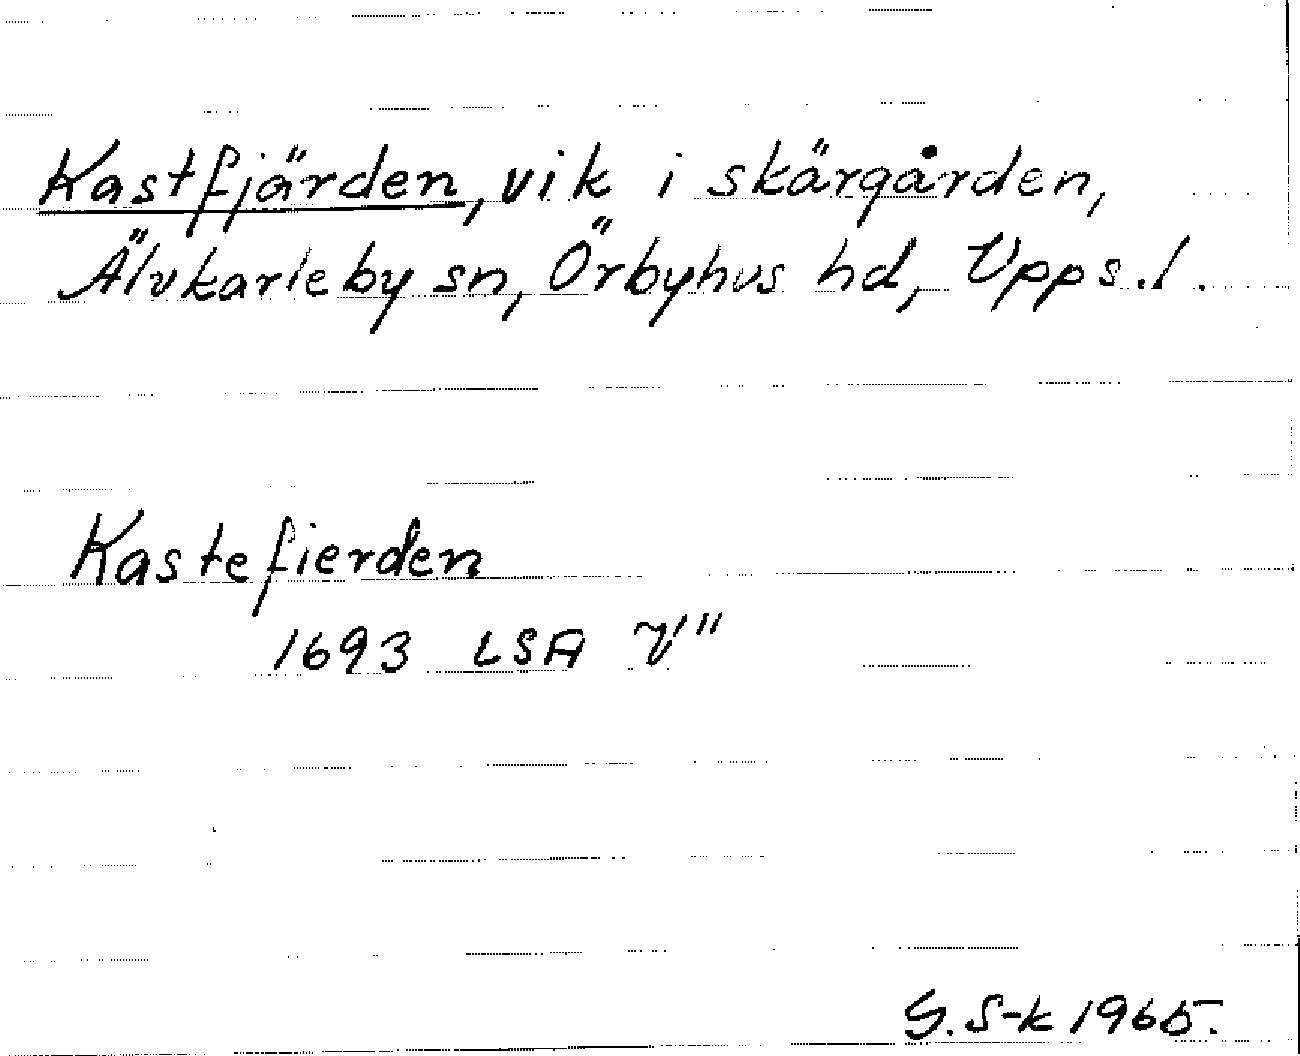 Kastfjärden, vik i skärgården,
Älvkarleby sn, Örbyhus hd, Upps. l.
Kastefierden
1693 LSA
S. S-k 1965.